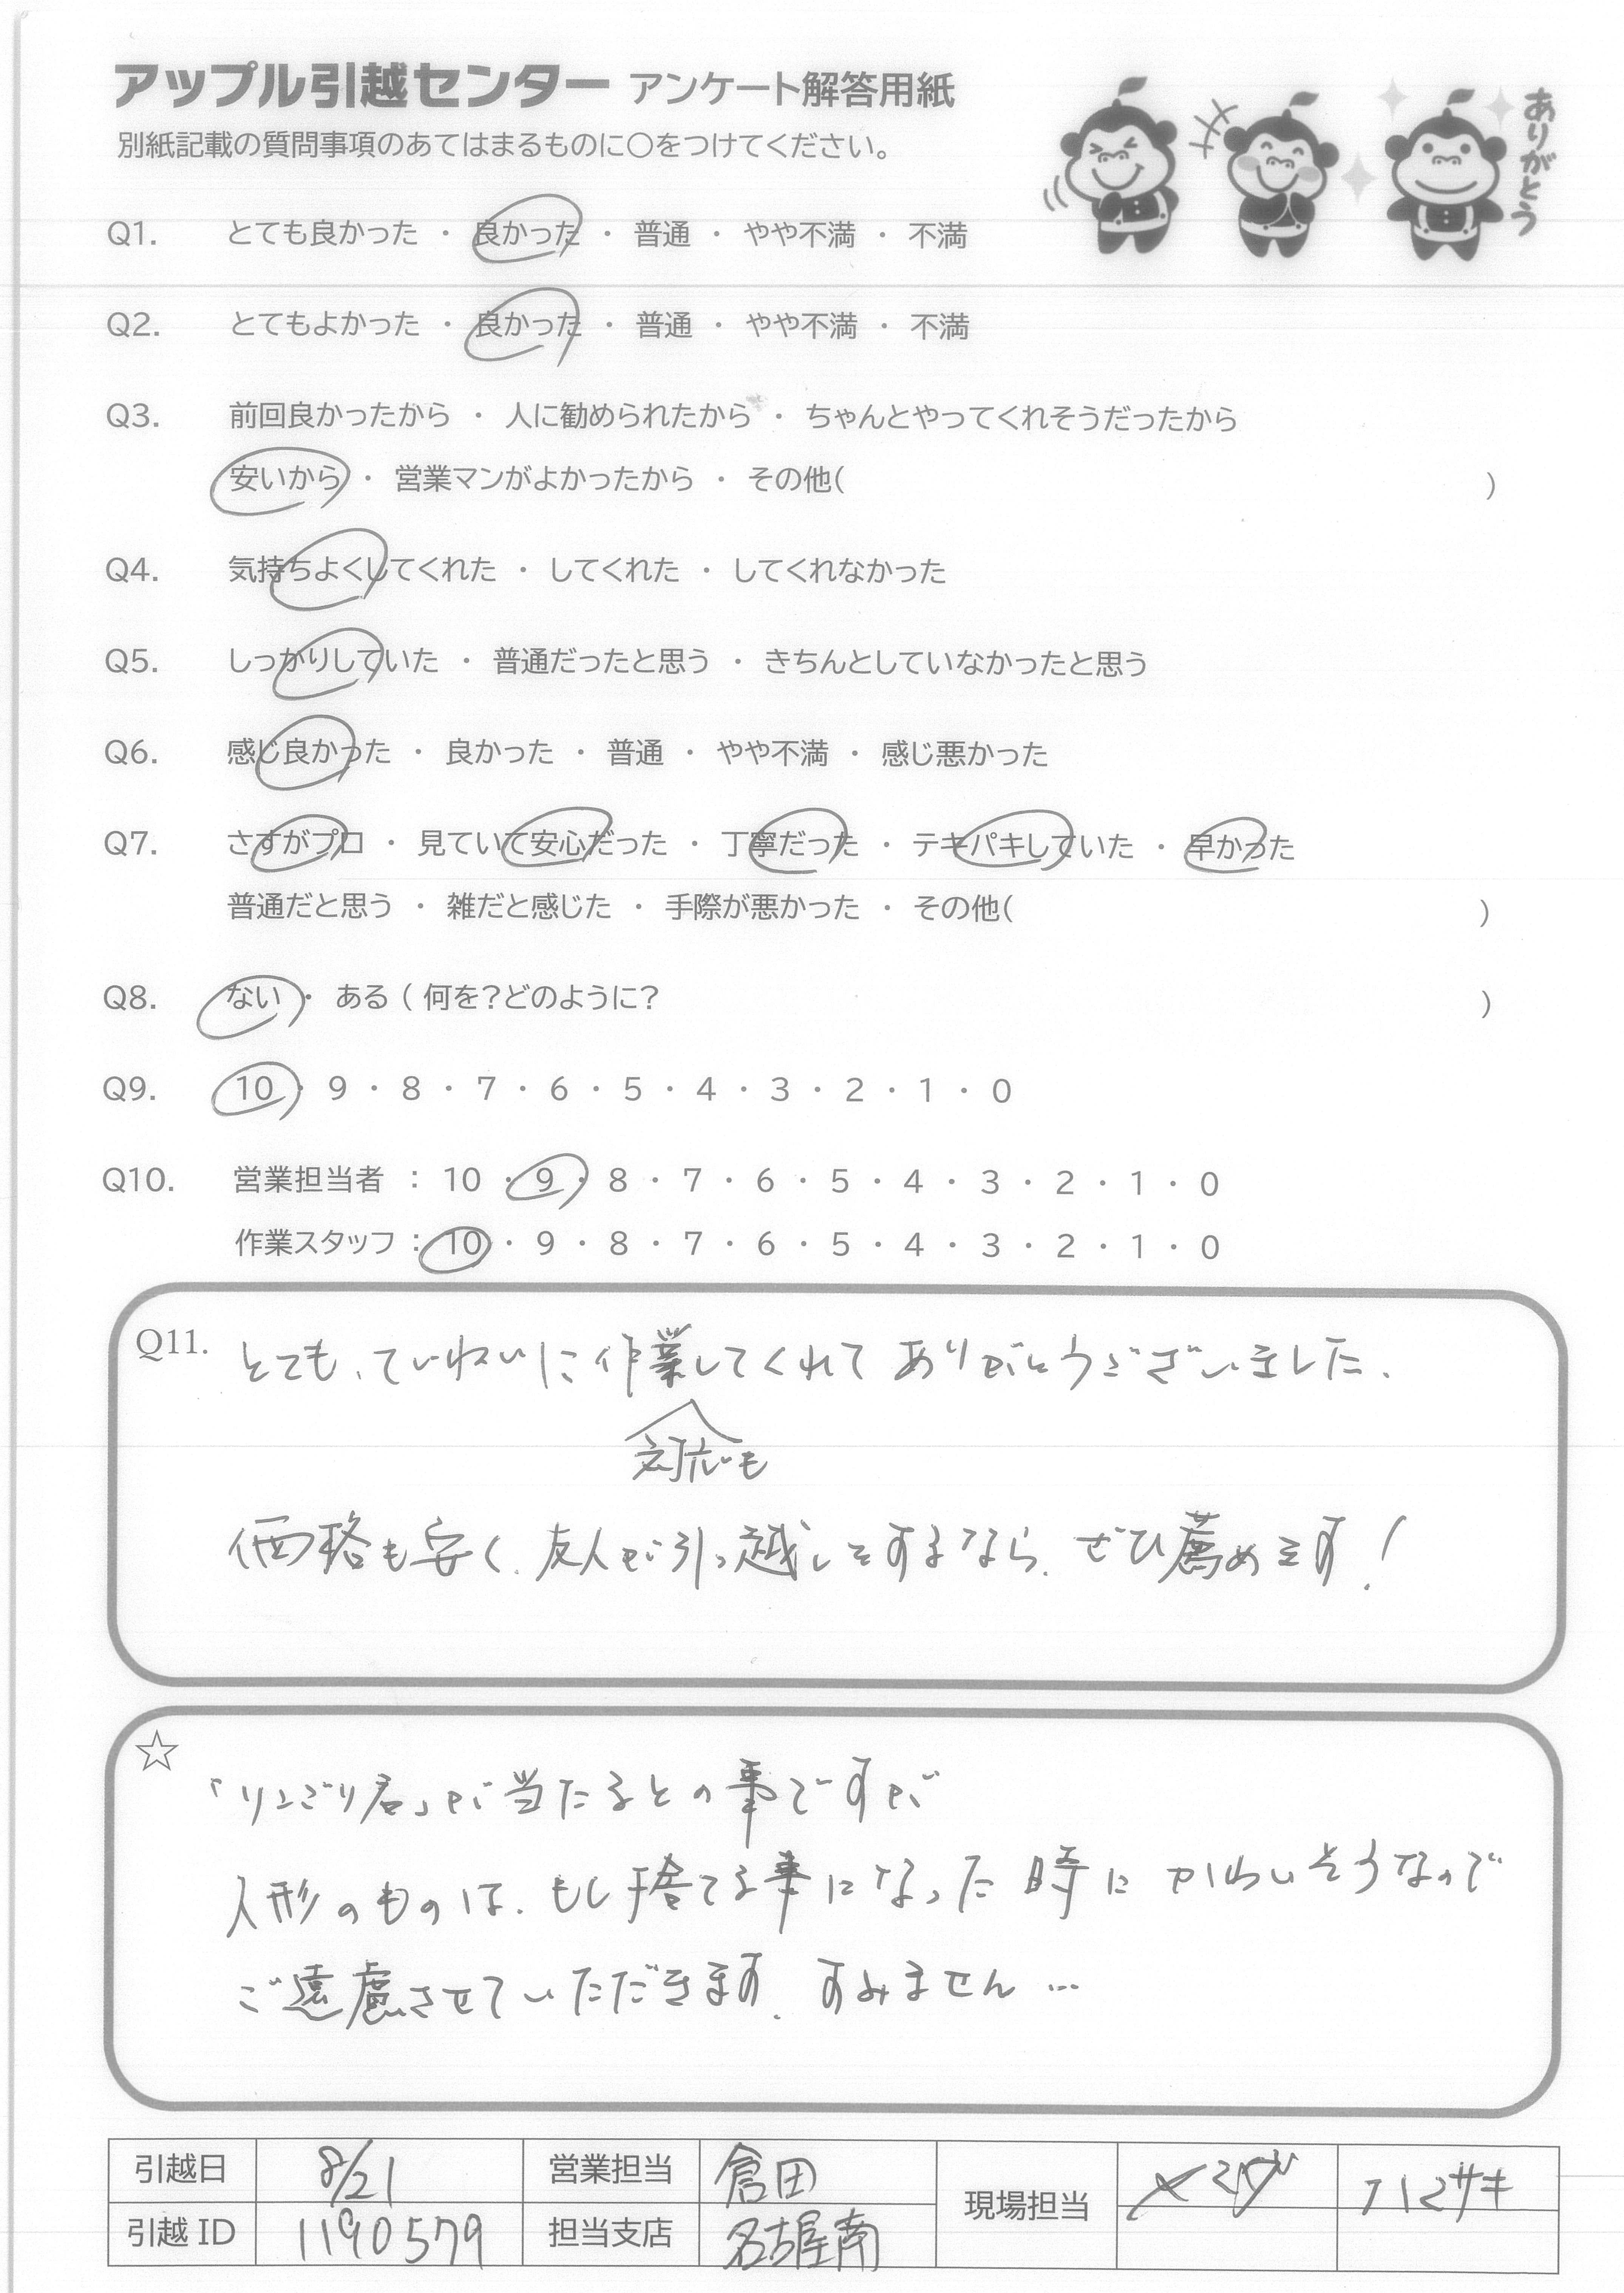 アップル引越センター アンケート解答用紙
別紙記載の質問事項のあてはまるものに○をつけてください。
ありがとう
Q1. とても良かった ・ 良かった ・ 普通 ・ やや不満 ・ 不満
Q2. とてもよかった ・ 良かった ・ 普通 ・ やや不満 ・ 不満
Q3. 前回良かったから ・ 人に勧められたから ・ ちゃんとやってくれそうだったから
安いから ・ 営業マンがよかったから ・ その他( )
Q4. 気持ちよくしてくれた ・ してくれた ・ してくれなかった
Q5. しっかりしていた ・ 普通だったと思う ・ きちんとしていなかったと思う
Q6. 感じ良かった ・ 良かった ・ 普通 ・ やや不満 ・ 感じ悪かった
Q7. さすがプロ ・ 見ていて安心だった ・ 丁寧だった ・ テキパキしていた ・ 早かった
普通だと思う ・ 雑だと感じた ・ 手際が悪かった ・ その他( )
Q8. ない ・ ある ( 何を?どのように? )
Q9. 10 ・ 9 ・ 8 ・ 7 ・ 6 ・ 5 ・ 4 ・ 3 ・ 2 ・ 1 ・ 0
Q10. 営業担当者 : 10 ・ 9 ・ 8 ・ 7 ・ 6 ・ 5 ・ 4 ・ 3 ・ 2 ・ 1 ・ 0
作業スタッフ : 10 ・ 9 ・ 8 ・ 7 ・ 6 ・ 5 ・ 4 ・ 3 ・ 2 ・ 1 ・ 0
Q11. とても、ていねいに作業してくれてありがとうございました。
対応も
価格も安く、友人が引っ越しをするなら、ぜひ薦めます!
☆
「リンごり君」が当たるとの事ですが
人形のものは、もし捨てる事になった時にかわいそうなので
ご遠慮させていただきます。すみません…
引越日 8/21 営業担当 倉田 現場担当 ハマサキ
引越ID 1190579 担当支店 名古屋南